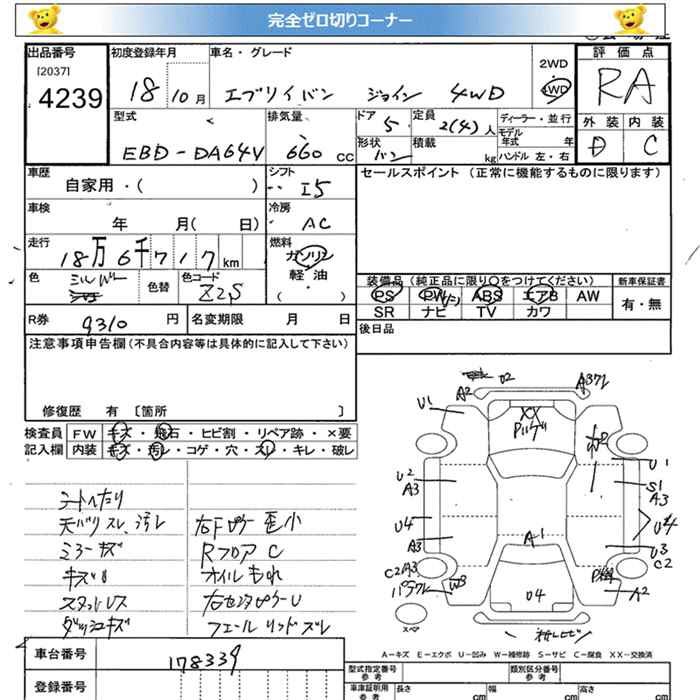 完全ゼロ切りコーナー
出品番号 初度登録年月 車名・グレード 評価点
[2037]
4239
18 10月 エブリイバン ジョイン 4WD
2WD
4WD
RA
型式 排気量 ドア 定員 ディーラー・並行 外装 内装
5 2(4)人 モデル年式 年 D C
EBD-DA64V 660cc
形状 バン 積載 kg ハンドル 左・右
車歴 シフト セールスポイント (正常に機能するものに限ります)
自家用・( ) I5
車検 冷房
年 月( 日) AC
走行 燃料
18万6千717km ガソリン
軽・油
( )
色 シルバー 色替 色コード Z2S
装備品(純正品に限り○をつけてください) 新車保証書
PS PW ABS エアB AW 有・無
SR ナビ TV カワ
R券 9310円 名変期限 月 日
後日品
注意事項申告欄(不具合内容等は具体的に記入して下さい)
修復歴 有 〔箇所 〕
検査員 FW キズ・飛石・ヒビ割・リペア跡・×要
記入欄 内装 キズ・汚レ・コゲ・穴・スレ・キレ・破レ
シートへたり
天バリスレ、汚レ 右Fピラー歪小
ミラーキズ RフロアC
キズ オイルもれ
スタットレス 右センタピラーU
ダッシュキズ フェールリッドズレ
U2
A2
U1
XX
U2
A3
U1
S1
A3
U4
U4
A3
A1
U3
C2
C2
A3
W3
U4
A2
スペア
A-キズ E-エクボ U-凹み W-補修跡 S-サビ C-腐食 XX-交換済
車台番号 178339
型式指定番号 参考 類別区分番号 参考
登録番号
車庫証明用 参考 長さ cm 幅 cm 高さ cm